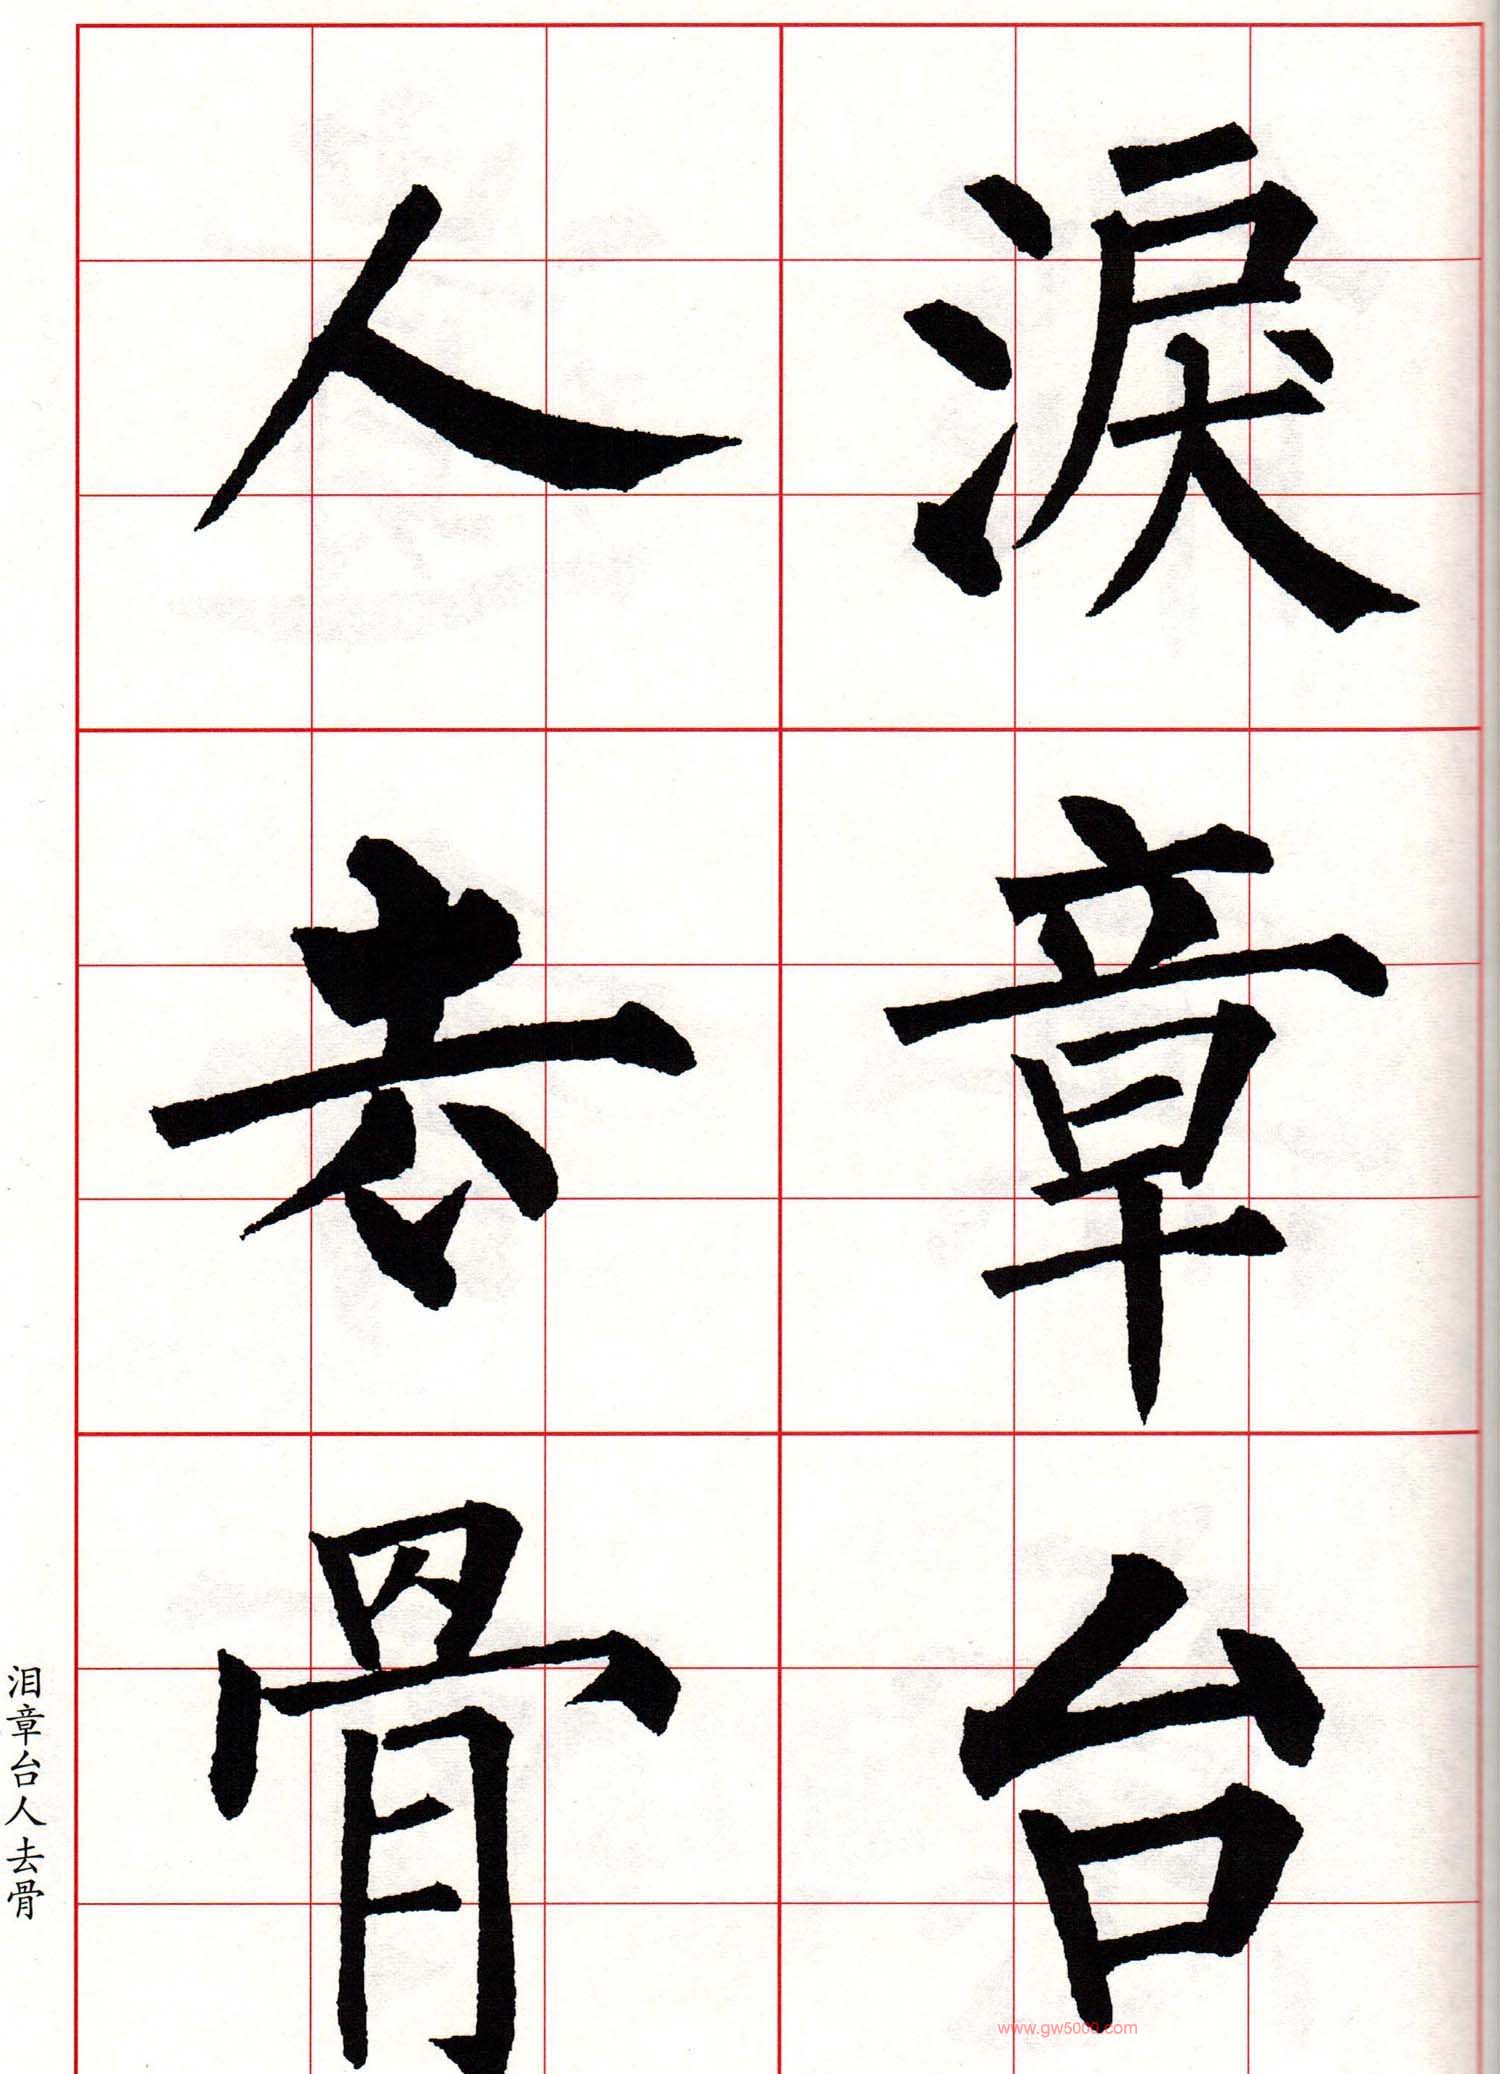 淚章台
人去骨
泪章台人去骨
www.gw5000.com